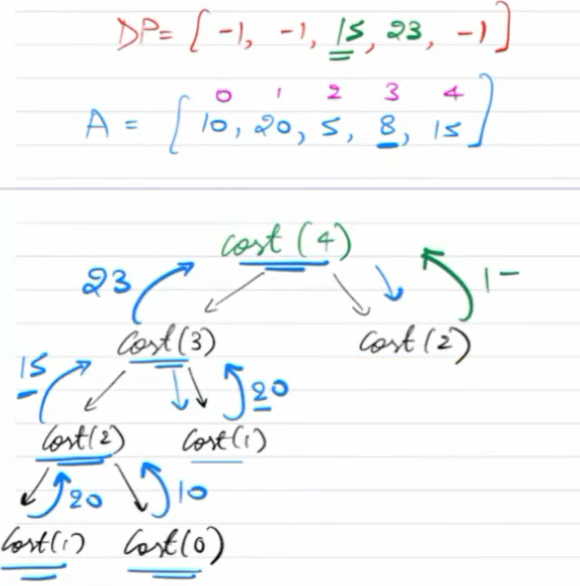 DP = [-1, -1, 15, 23, -1]
0 1 2 3 4
A = [10, 20, 5, 8, 15]
cost (4)
23
1-
cost(3) cost(2)
15 20
cost(2) cost(1)
20 10
cost(1) cost(0)